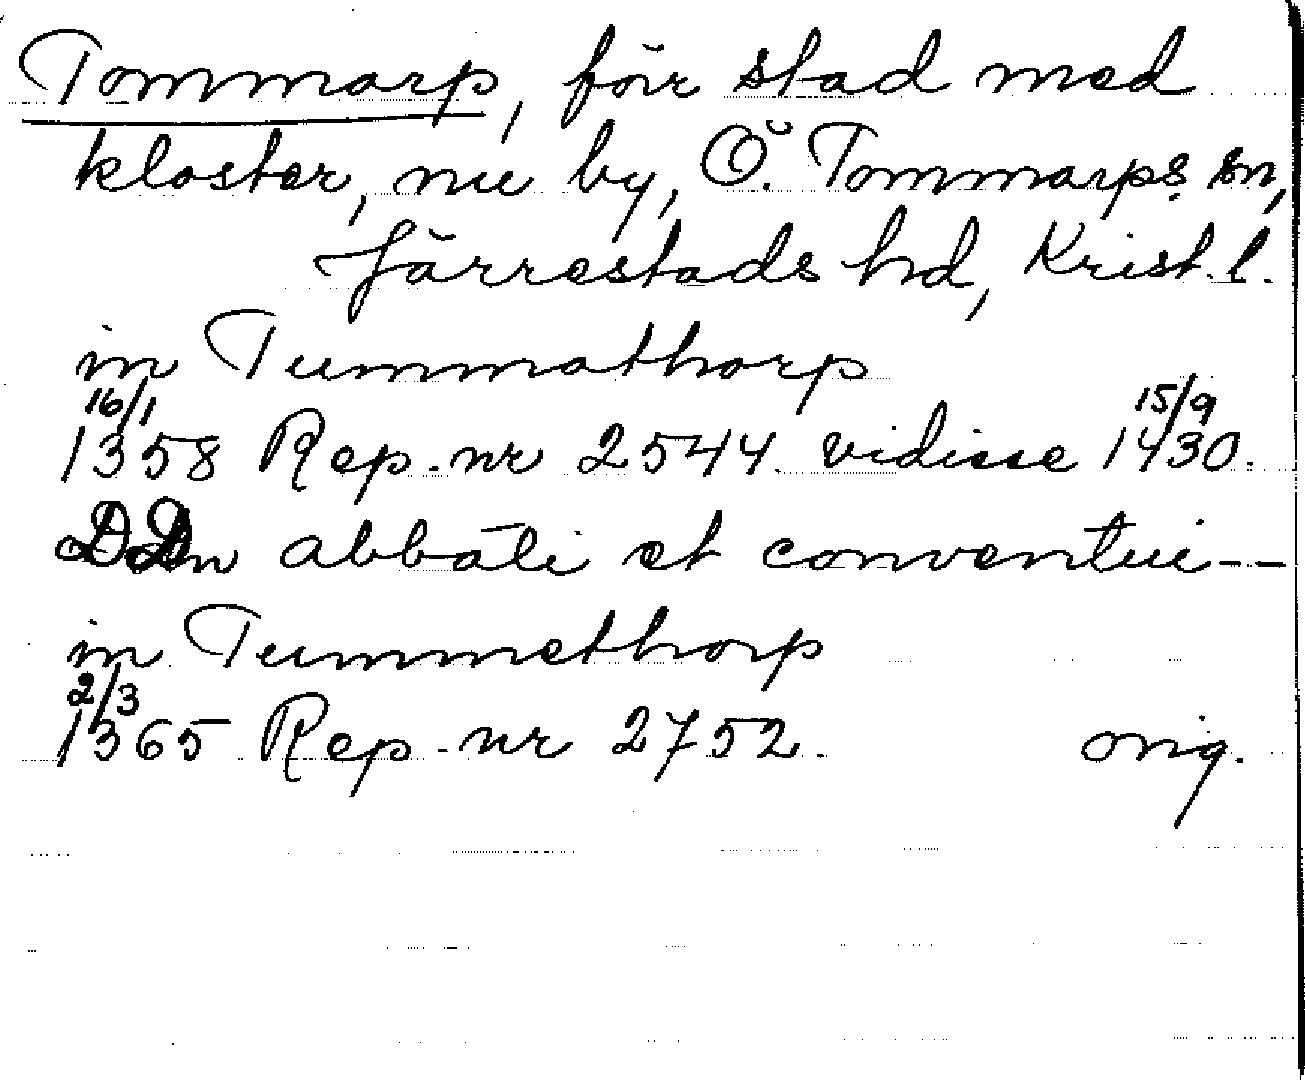 Tommarp, förr stad med
kloster, nu by, Ö. Tommarps sn,
Järrestads hd, Krist. l.
in Tummathorp
16/1 1358 Rep. nr 2544 vidisse 15/9 1430.
abbati et conventui--
in Tummethorp
2/3 1365 Rep. nr 2752. orig.